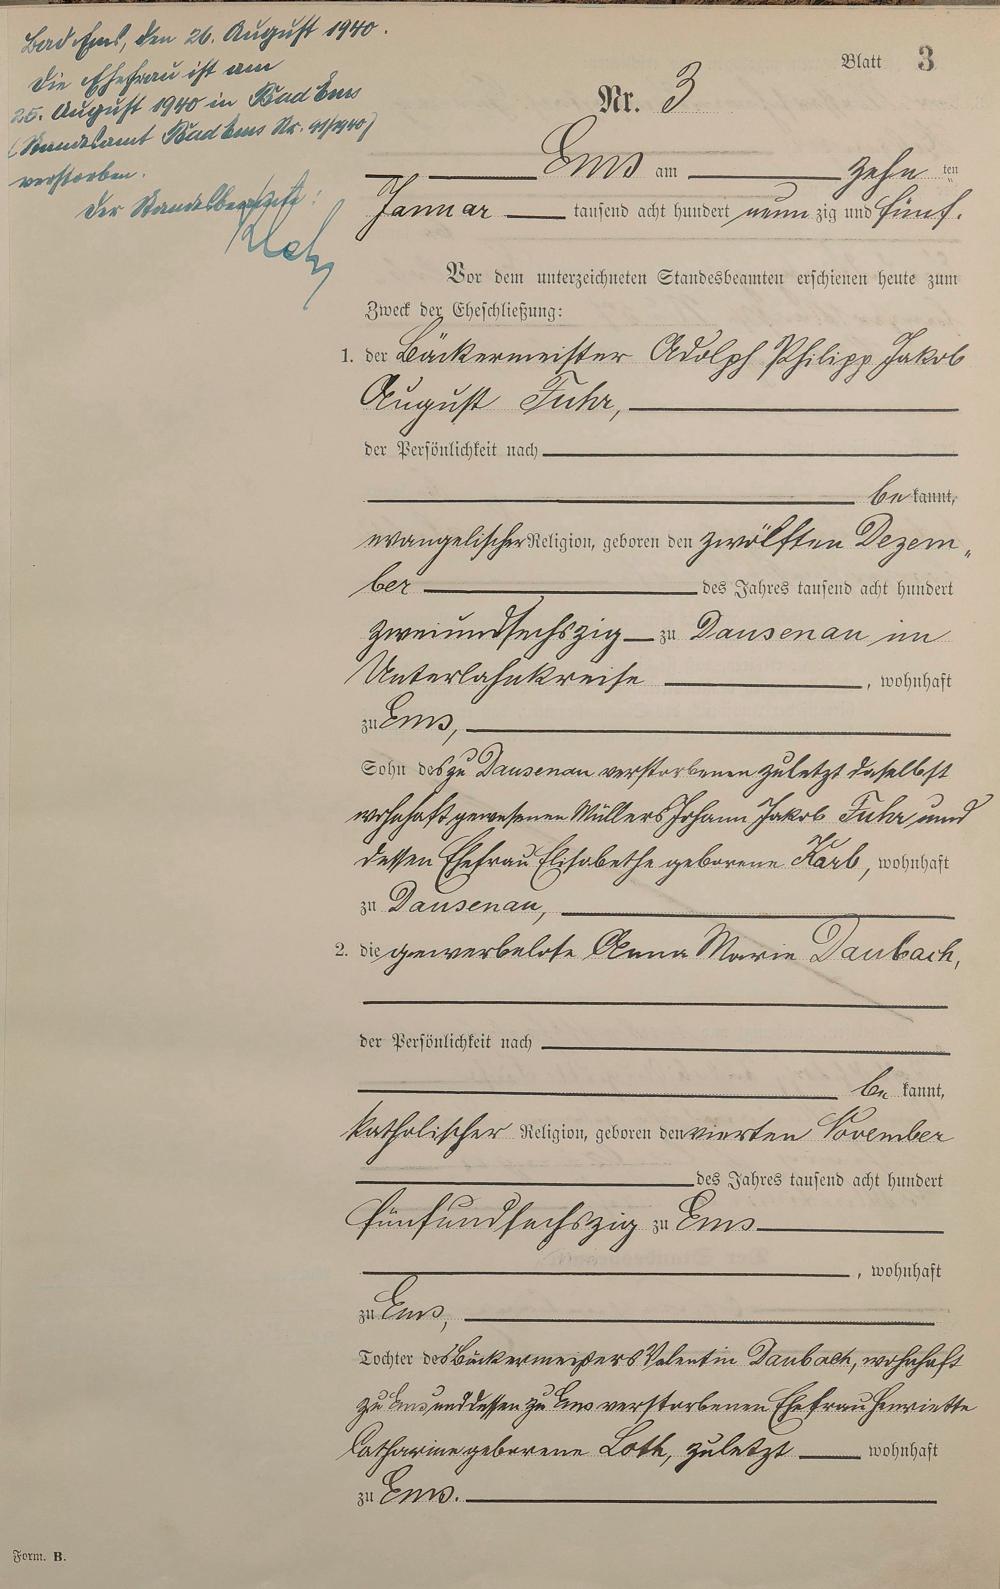 Bad Ems, den 26. August 1940.
Die Ehefrau ist am
25. August 1940 in Bad Ems
(Standesamt Bad Ems Nr. 91/1940)
verstorben.
Der Standesbeamte:
Blatt 3
Nr. 3
Ems am zehn ten
Januar tausend acht hundert neun zig und fünf.
Vor dem unterzeichneten Standesbeamten erschienen heute zum
Zweck der Eheschließung:
1. der Bäckermeister Adolph Philipp Jakob
August Fuhr,
der Persönlichkeit nach
be kannt,
evangelischer Religion, geboren den zwölften Dezem„
ber des Jahres tausend acht hundert
zweiundsechszig zu Dausenau im
Unterlahnkreise , wohnhaft
zu Ems,
Sohn des zu Dausenau verstorbenen zuletzt daselbst
wohnhaft gewesenen Müllers Johann Jakob Fuhr und
dessen Ehefrau Elisabethe geborene Karb, wohnhaft
zu Dausenau,
2. die gewerbelose Anna Marie Daubach,
der Persönlichkeit nach
be kannt,
katholischer Religion, geboren den vierten November
des Jahres tausend acht hundert
fünfundsechszig zu Ems
, wohnhaft
zu Ems,
Tochter des Bäckermeisters Valentin Daubach, wohnhaft
zu Ems und dessen zu Ems verstorbenen Ehefrau Henriette
Catharine geborene Loth, zuletzt wohnhaft
zu Ems.
Form. B.